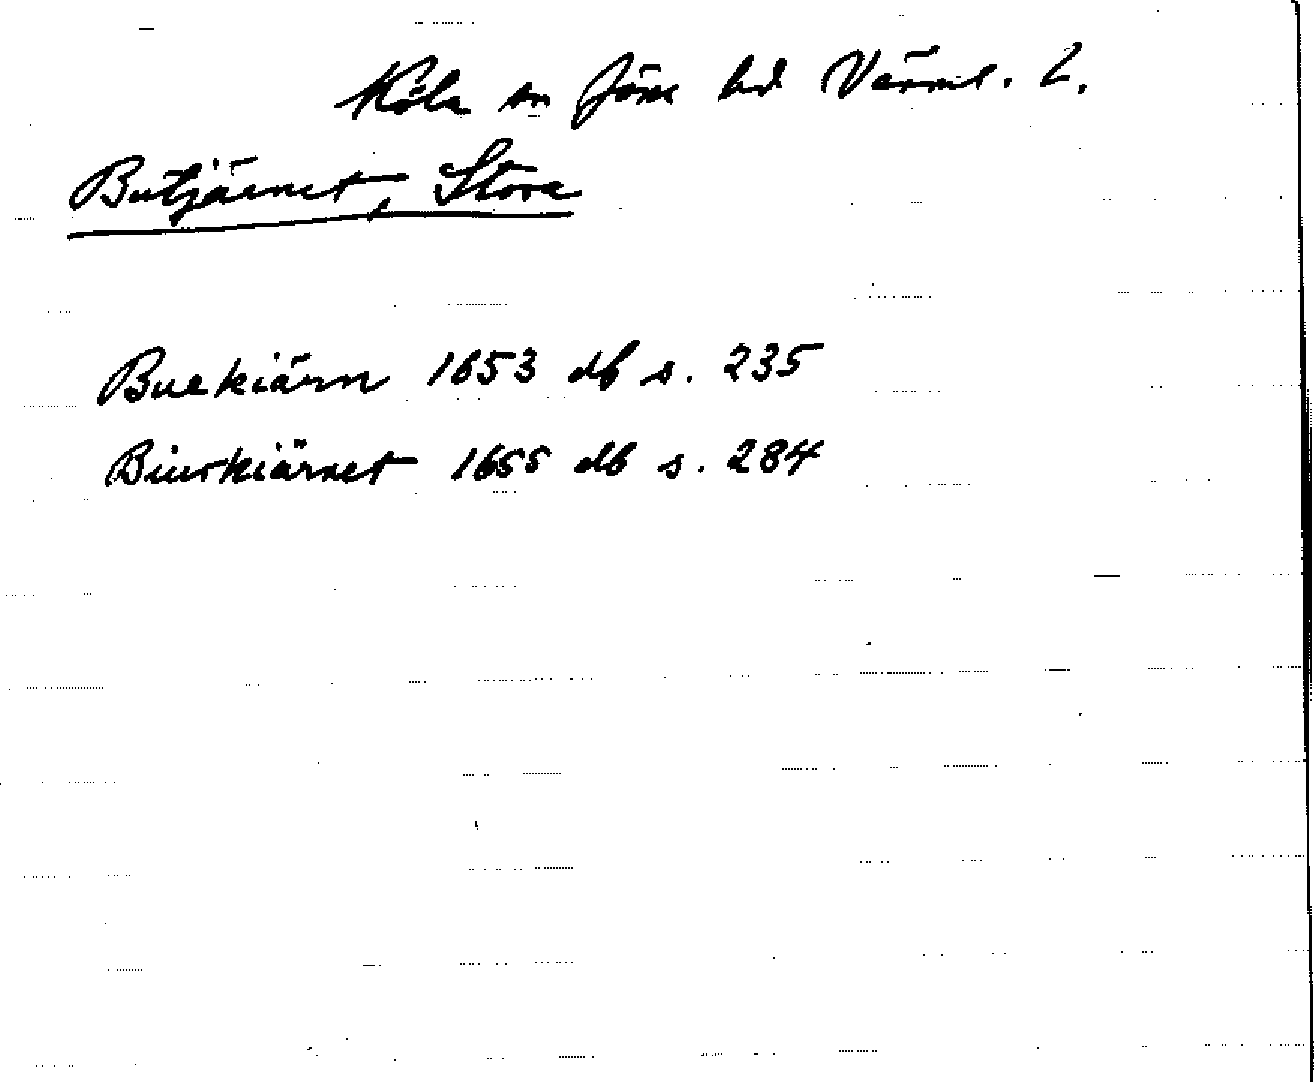 Köla sn Jöss hd Värml. L.
Butjärnet, Stora
Buekiärn 1653 db s. 235
Biurkiärnet 1655 db s. 284